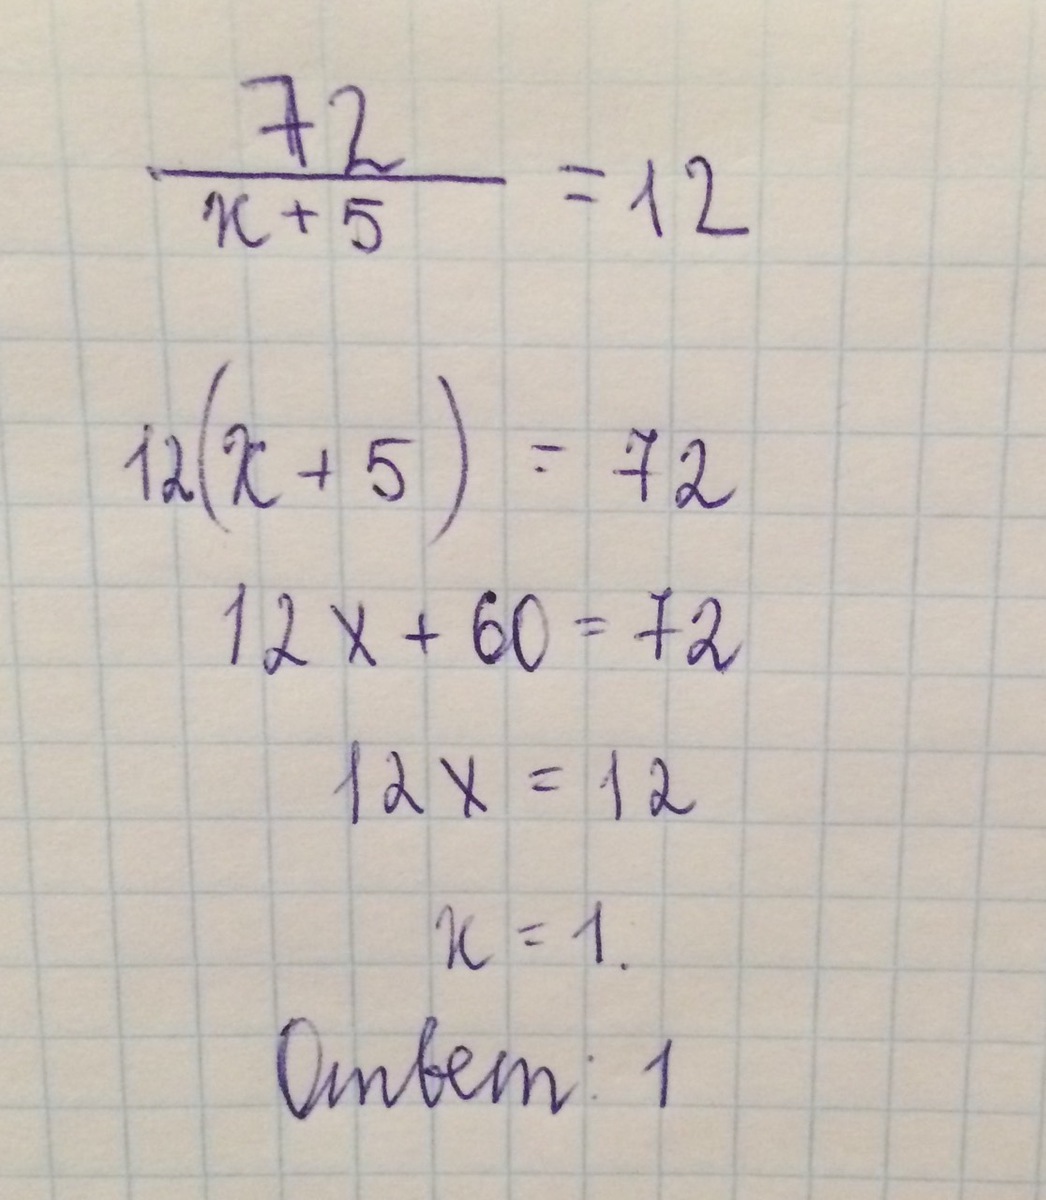 72
x + 5 = 12
12(x + 5) = 72
12x + 60 = 72
12x = 12
x = 1.
Ответ: 1